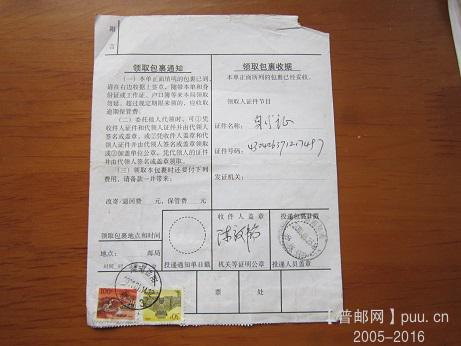 附
言
领取包裹通知
(一)本单正面填写的包裹已到,
请在右边收据上签章。随带本单和身
份证或工作证、户口簿等来本局领取
勿延。超过规定期限来领的,应收取
逾期保管费。
(二)委托他人代领时,可①凭
收件人证件和代领人证件并由代领人
签名或盖章,或②凭收件人盖章和代
领人证件并由代领人签名或盖章领取
或③加盖单位公章。凭代领人的证件
并由代领人签名或盖章领取。
(三)领取本包裹时还要付下列
费用,请备款一并带来:
改寄/退回费 元,保管费 元。
领取包裹地点和时间
地点: 邮局
时间
投递通知单日戳
领取包裹收据
本单正面所列的包裹已经妥收。
领取人证件节目
证件名称:
证件号码:
发证机关:
收件人盖章
机关等证明公章
投递包裹日戳
投递人员盖章
票
处
【普邮网】puu.cn
2005-2016